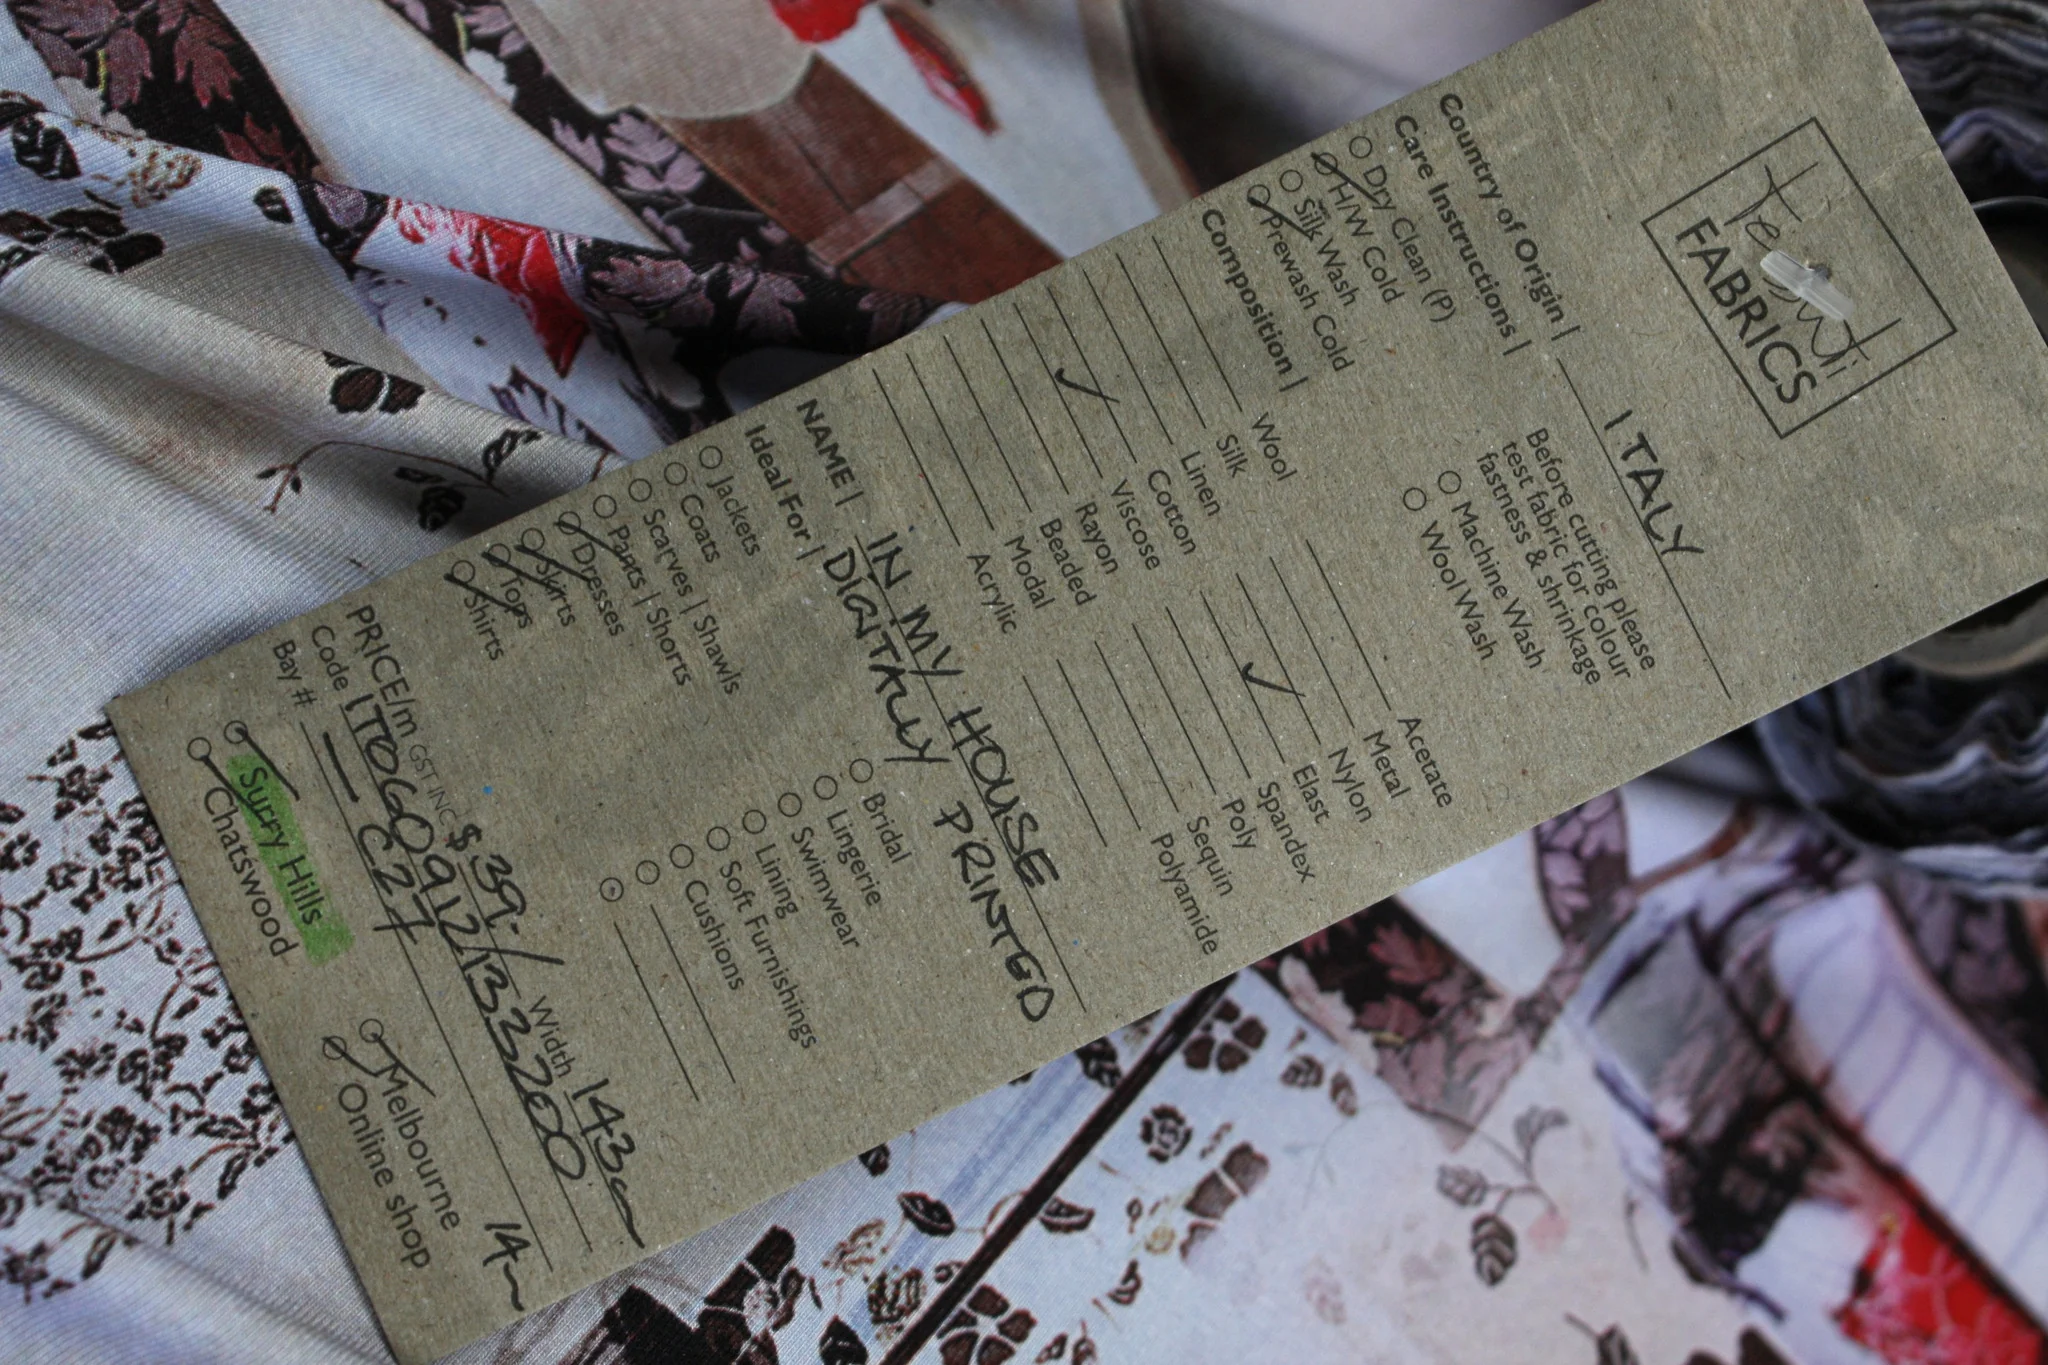 Tessuti
FABRICS
Country of Origin | ITALY
Care Instructions |
Before cutting please
test fabric for colour
fastness & shrinkage
Dry Clean (P)
H/W Cold
Silk Wash
Prewash Cold
Machine Wash
Wool Wash
Composition |
Wool
Silk
Linen
✓ Cotton
Viscose
Rayon
Beaded
Modal
Acrylic
Acetate
Metal
Nylon
✓ Elast
Spandex
Poly
Sequin
Polyamide
NAME | IN MY HOUSE
DIGITALLY PRINTED
Ideal For |
Jackets
Coats
Scarves | Shawls
Pants | Shorts
Dresses
Skirts
Tops
Shirts
Bridal
Lingerie
Swimwear
Lining
Soft Furnishings
Cushions
PRICE/m GST INC $39.-/ Width 143cm
Code ITDG0912/133200
Bay # — C27 14m
Surry Hills
Chatswood
Melbourne
Online shop